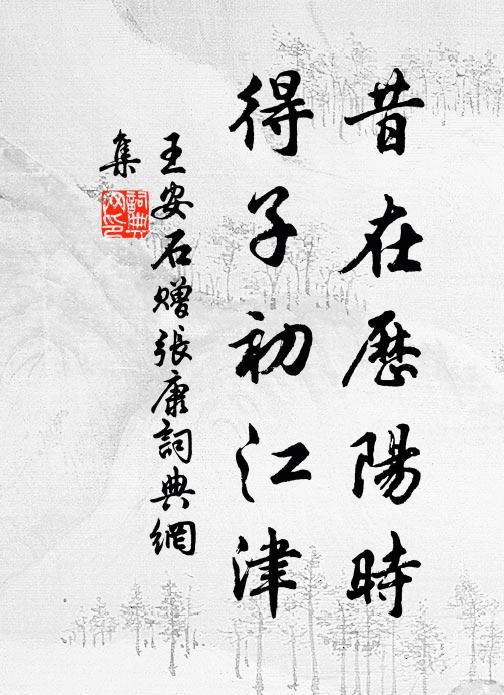 昔在歷陽時
得子初江津
王安石贈張康詞典網
集
詞典網印